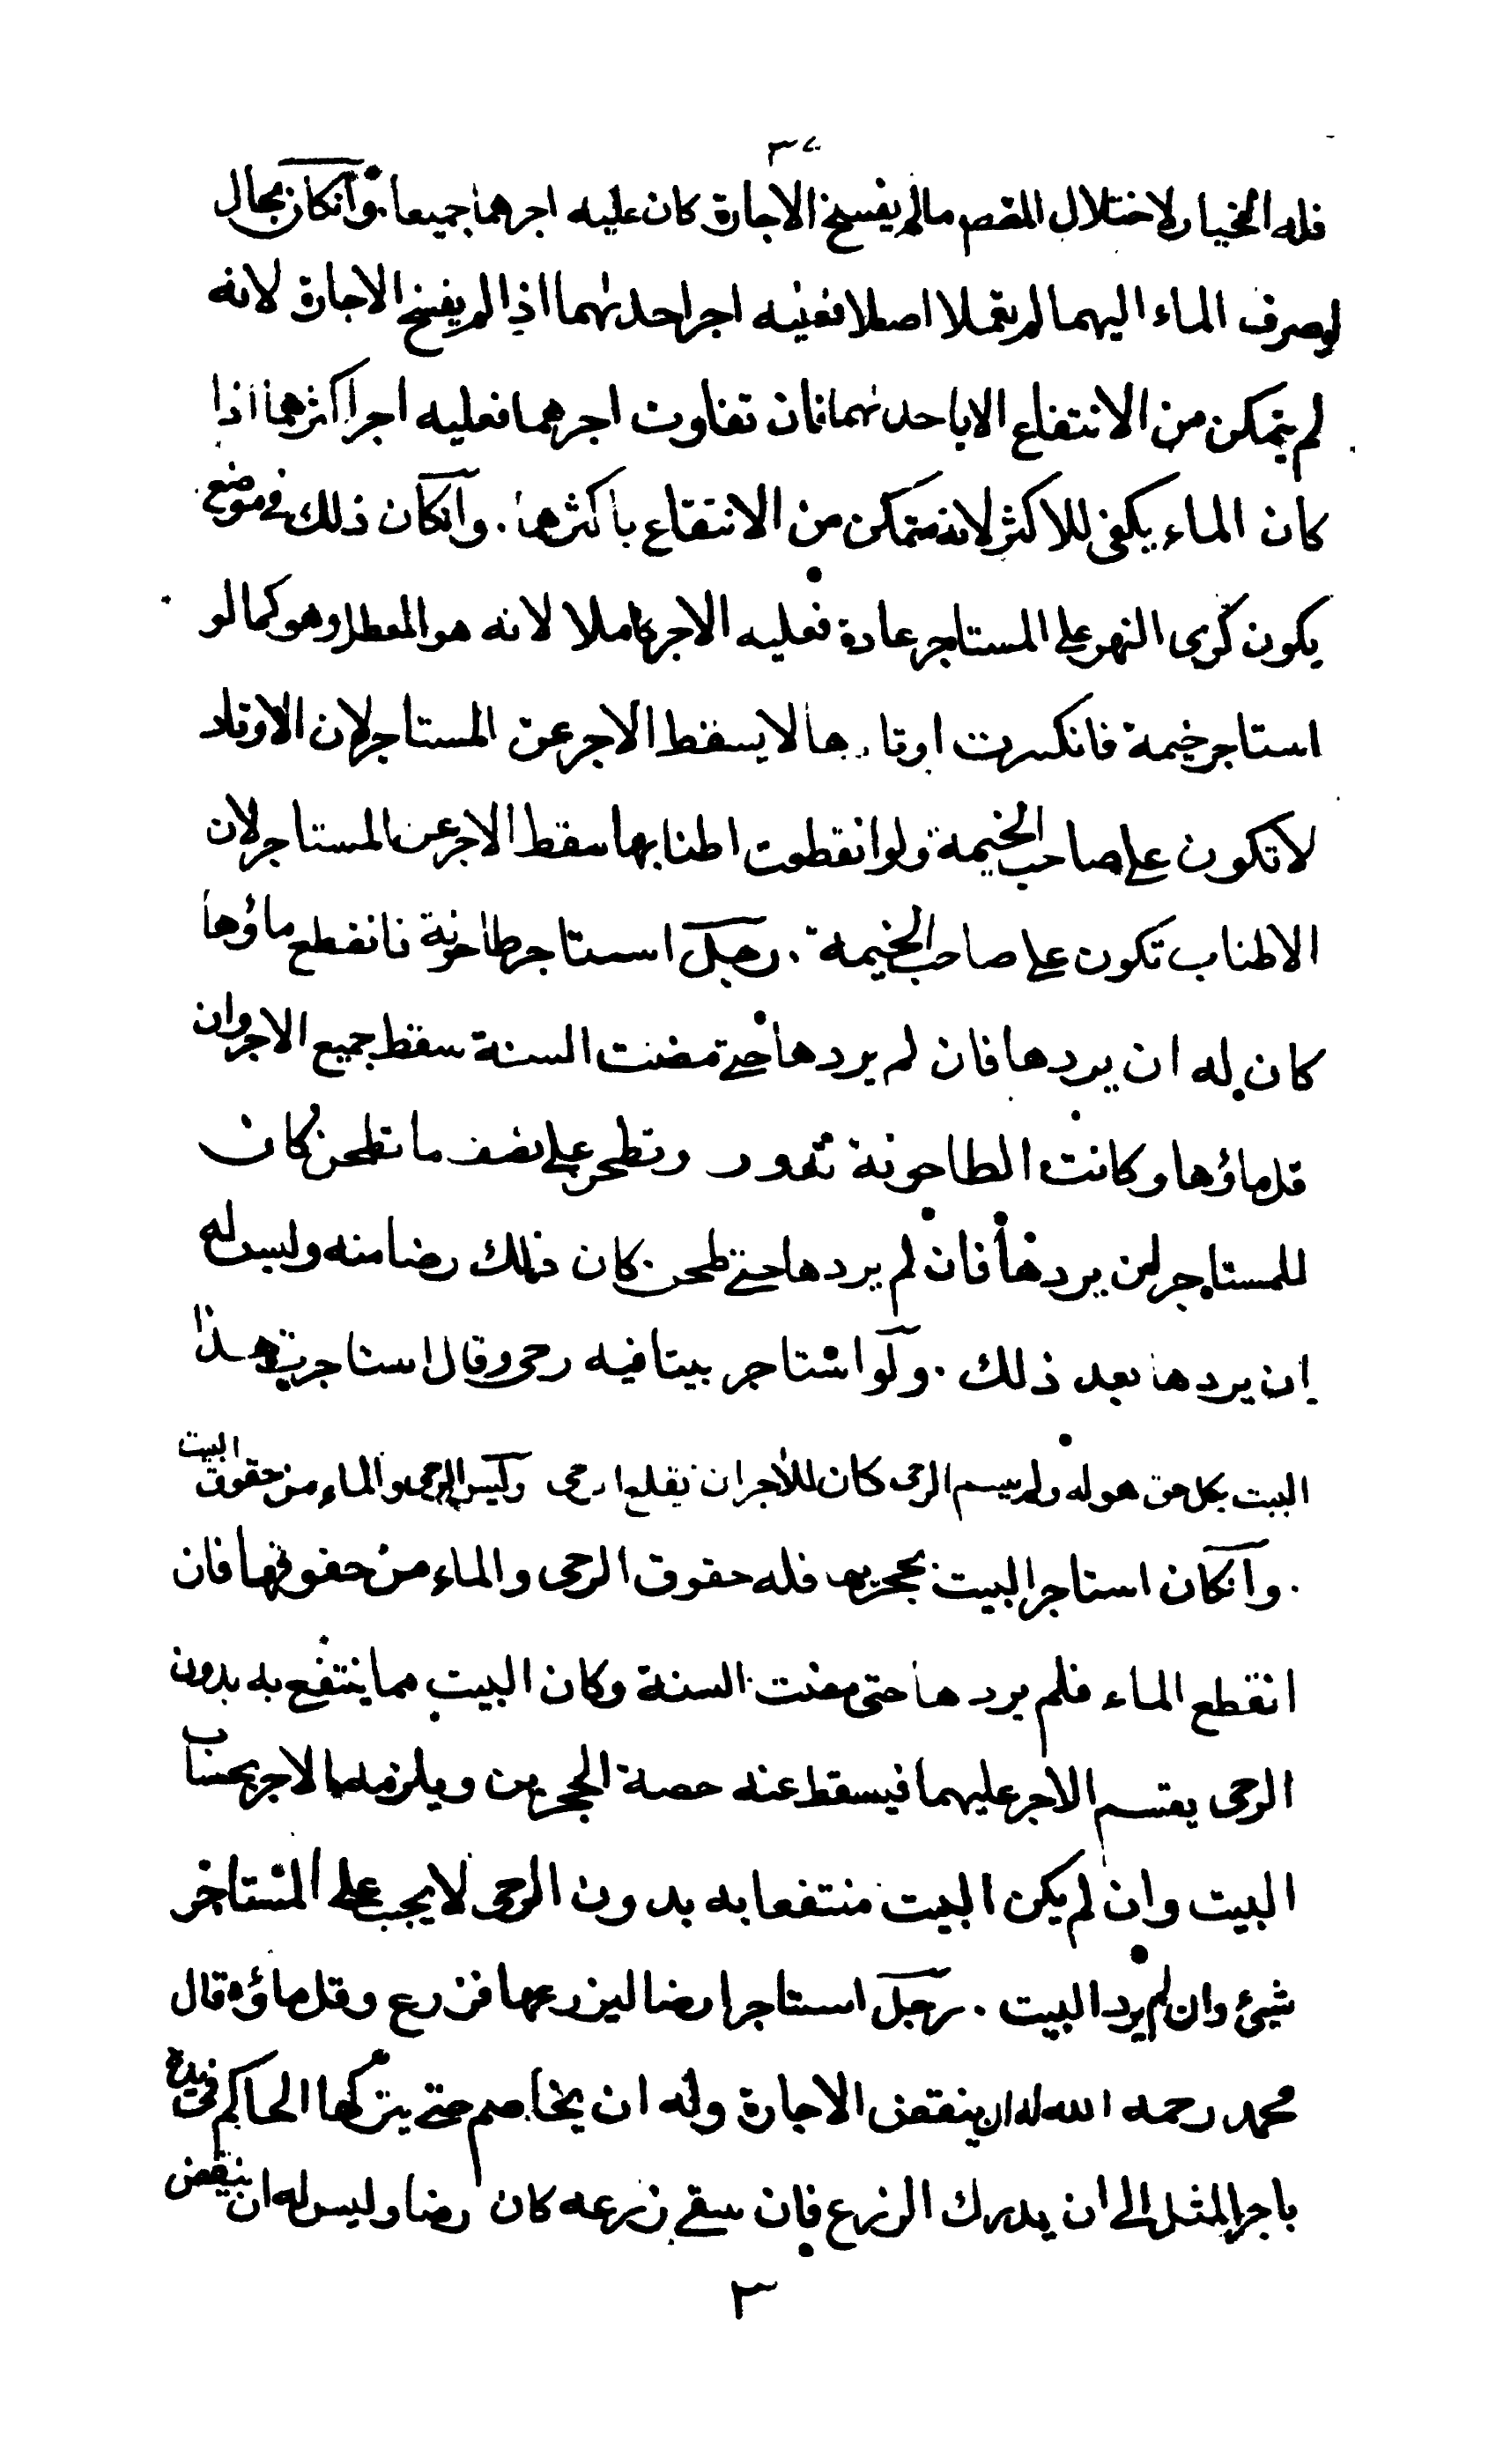 فله الخيار لاختلال المقصود ما لم يفسخ الاجارة كان عليه اجرهما جميعا وان كان بحال
لو صرف الماء اليهما لم تعملا اصلا فعليه اجر احدىهما اذا لم يفسخ الاجارة لانه
لم يتمكن من الانتفاع الا باحدىهما فان تفاوت اجرهما فعليه اجر اكثرهما اذا
كان الماء يكفى للاكثر لانه متمكن من الانتفاع باكثرهما . وان كان ذلك فى موضع
يكون كرى النهر على المستاجر عادة فعليه الاجر كاملا لانه هو المعطل وهو كما لو
استاجر خيمة فانكسرت اوتادها لا يسقط الاجر عن المستاجر لان الاوتاد
لا تكون على صاحب الخيمة ولو انقطعت اطنابها سقط الاجر عن المستاجر لان
الاطناب تكون على صاحب الخيمة . رجل استاجر طاحونة فانقطع ماؤها
كان له ان يردها فان لم يردها حتى مضت السنة سقط جميع الاجر وان
قل ماؤها وكانت الطاحونة تدور وتطحن على نصف ما تطحن كان
للمستاجر ان يردها فان لم يردها حتى طحن كان ذلك رضا منه وليس له
ان يردها بعد ذلك . ولو استاجر بيتا فيه رحى وقال استاجرت هذا
البيت بكل حق هو له ولم يسم الرحى كان للآجر ان يقلع الرحى وليس الرحى والماء من حقوق البيت
. وان كان استاجر البيت بحجريه فله حقوق الرحى والماء من حقوقها فان
انقطع الماء فلم يردها حتى مضت السنة وكان البيت مما ينتفع به بدون
الرحى يقسم الاجر عليهما فيسقط عنه حصة الحجرين ويلزمه الاجر بحساب
البيت وان لم يكن البيت منتفعا به بدون الرحى لا يجب على المستاجر
شىء وان لم يرد البيت . رجل استاجر ارضا ليزرعها فزرع وقل ماؤه قال
محمد رحمه الله له ان ينقض الاجارة وله ان يخاصم حتى يتركها الحاكم فى يده
باجر المثل الى ان يدرك الزرع فان سقى زرعه كان رضا وليس له ان ينقض
٣